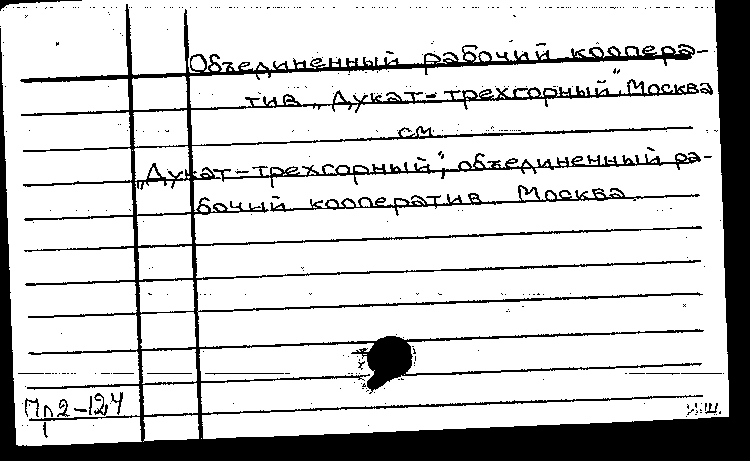 Объединенный рабочий коопера-
тив „Дукат-трехгорный", Москва
см
„Дукат-трехгорный", объединенный ра-
бочий кооператив Москва
Пр2-124
И.Ш.